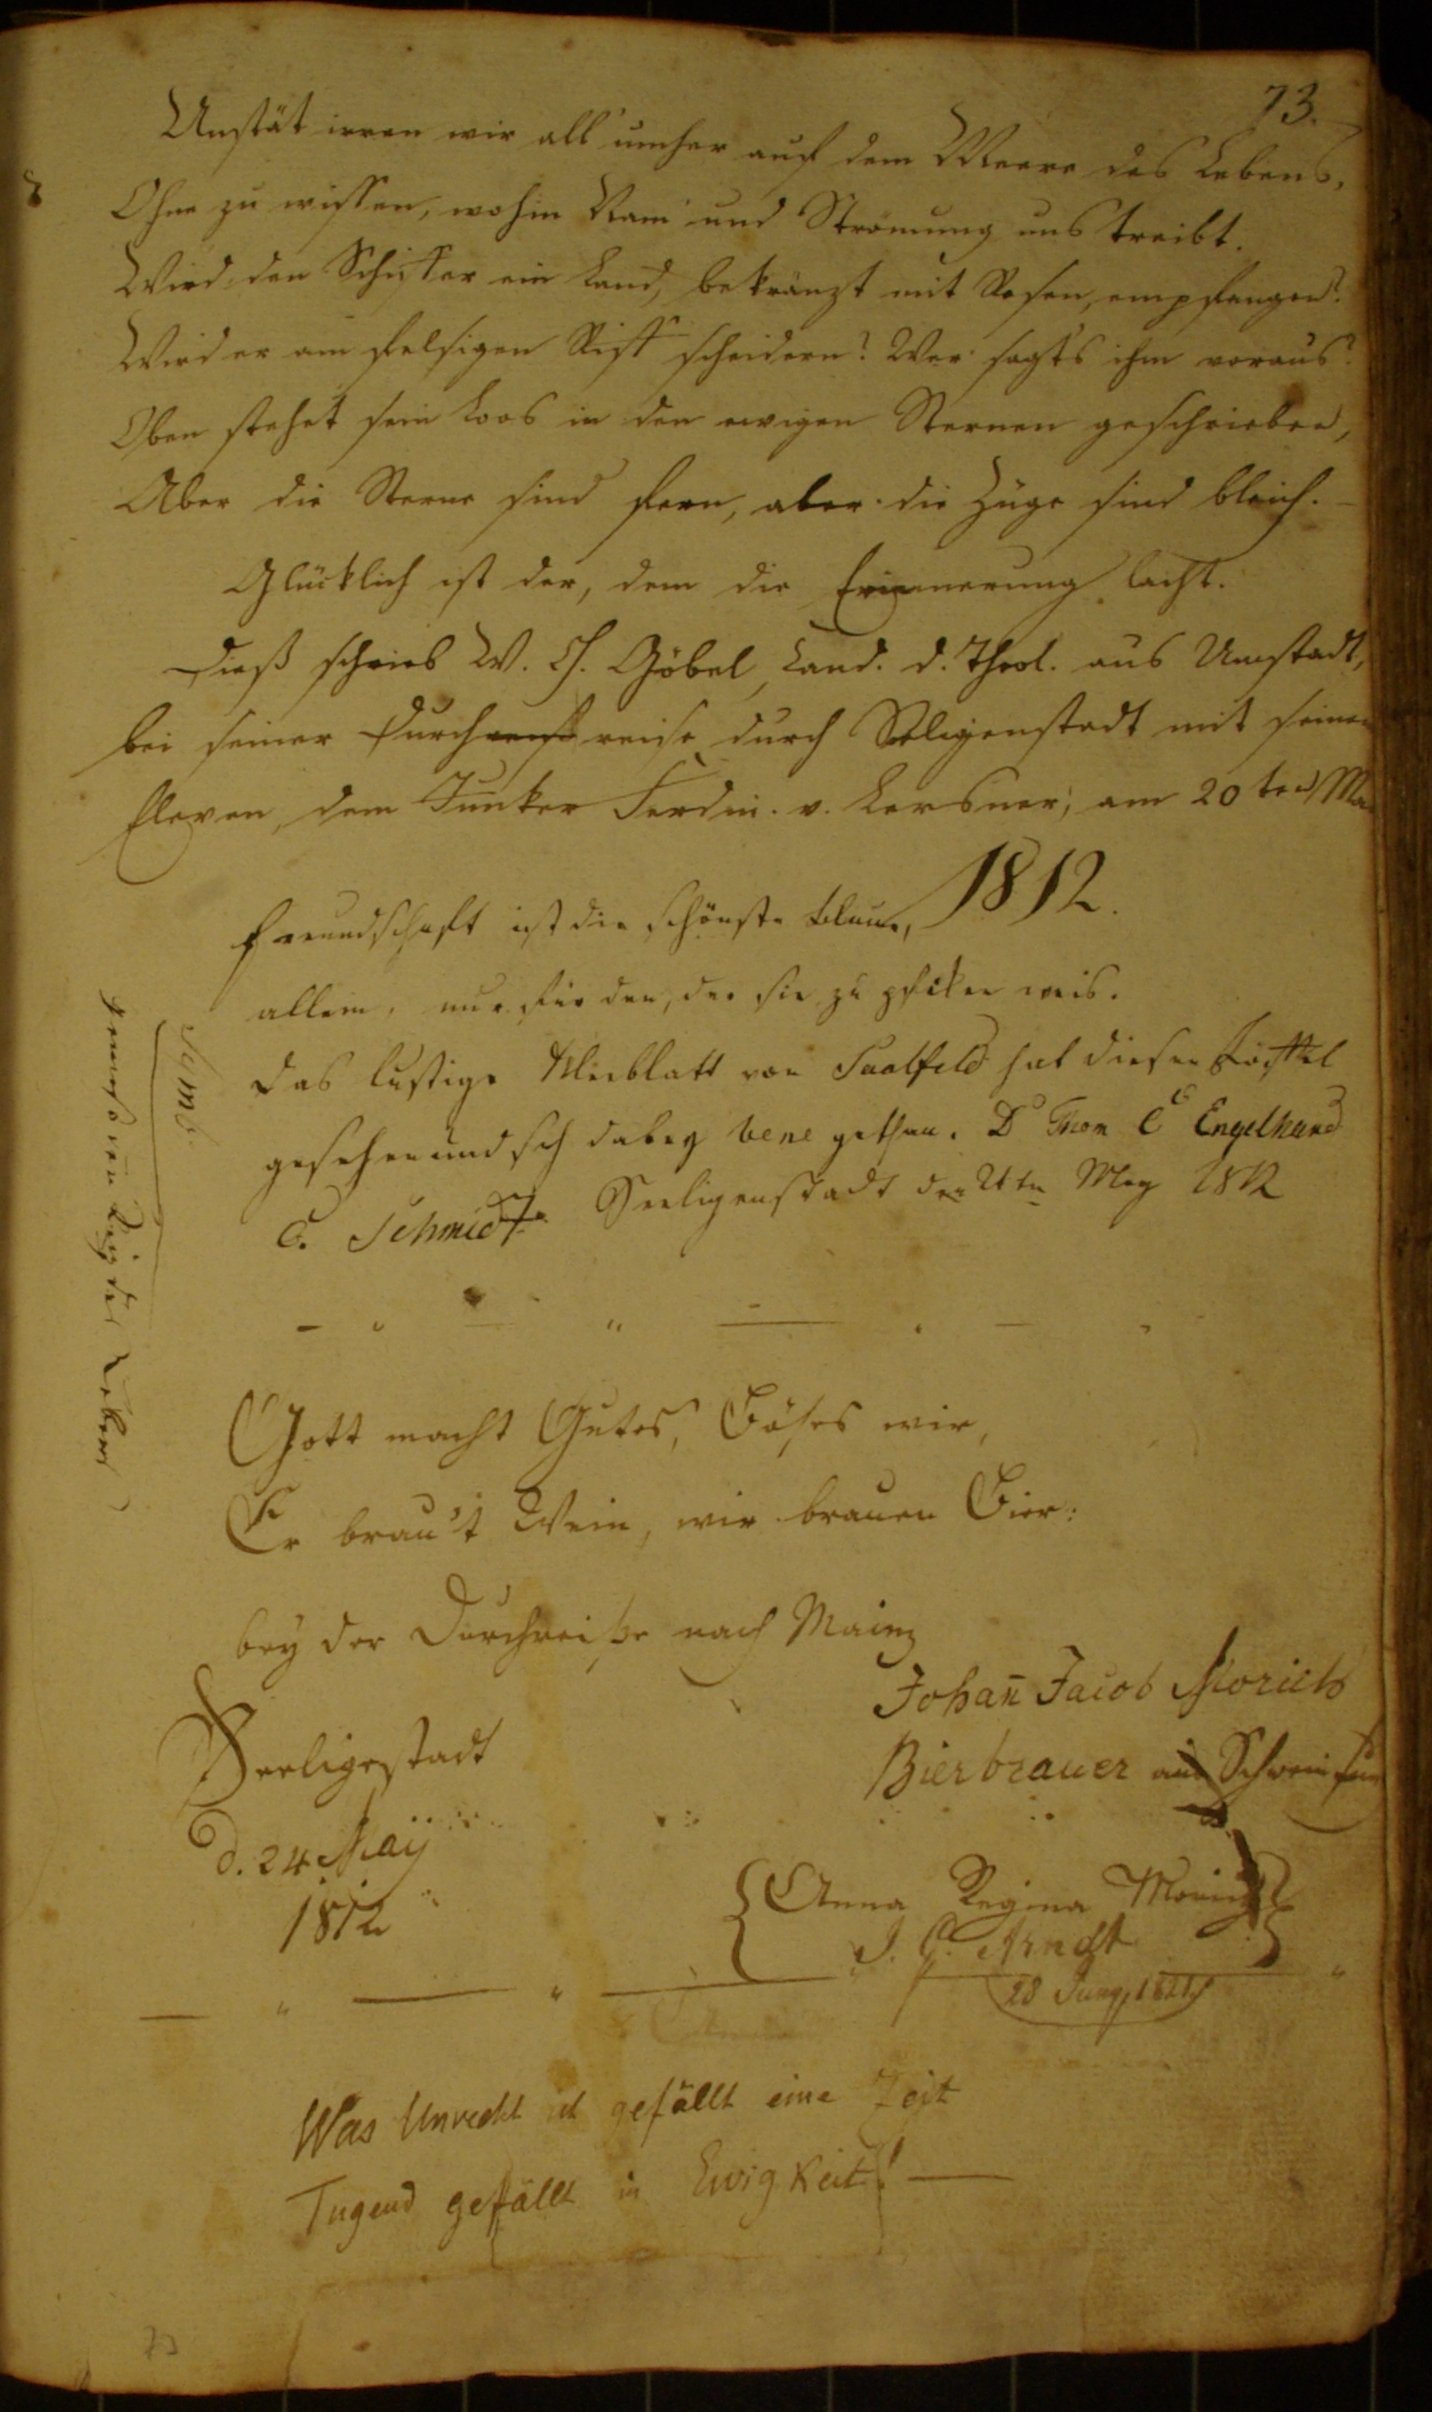 73.
Unstät irren wir all' umher auf dem Meere des Lebens,
Ohne zu wissen, wohin und Strömung uns treibt.
Wird den Schiffer ein Land, bekränzt mit Rosen, empfangen?
Wird er am felsigen Riff scheidern? Wer sagts ihm voraus?
Oben stehet sein Loos in den ewigen Sternen geschrieben,
Aber die Sterne sind fern, aber die Züge sind bleich. —
Glücklich ist der, dem die Erinnerung lacht.
Dieß schrieb W. Göbel, Cand. d. Theol. aus Umstadt,
bei seiner Durchreise durch Seligenstadt mit seinem
Eleven, dem Junker Ferdin. v. Lersner, am 20ten Ma
1812.
Freundschaft ist die schönste Blume,
allein, nur für den, der sie zu weis.
Das lustige von Saalfeld hat dieses
gesehen und sich dabey bene gethan. D Thom C Engelhard
C. Schmidt Seeligenstadt den 21tn May 1812
Gott macht Gutes, Böses wir,
Er brau't Wein, wir brauen Bier:
bey der Durchreiße nach Mainz
Johan̄ Jacob Morich
Bierbrauer aus Schweinfur
Seeligestadt
d. 24 Maÿ
1812
Anna Regina
J. C. Arndt
28 Juny 1821
Was Unrecht ist gefällt eine Zeit
Tugend gefällt in Ewigkeit! —
73